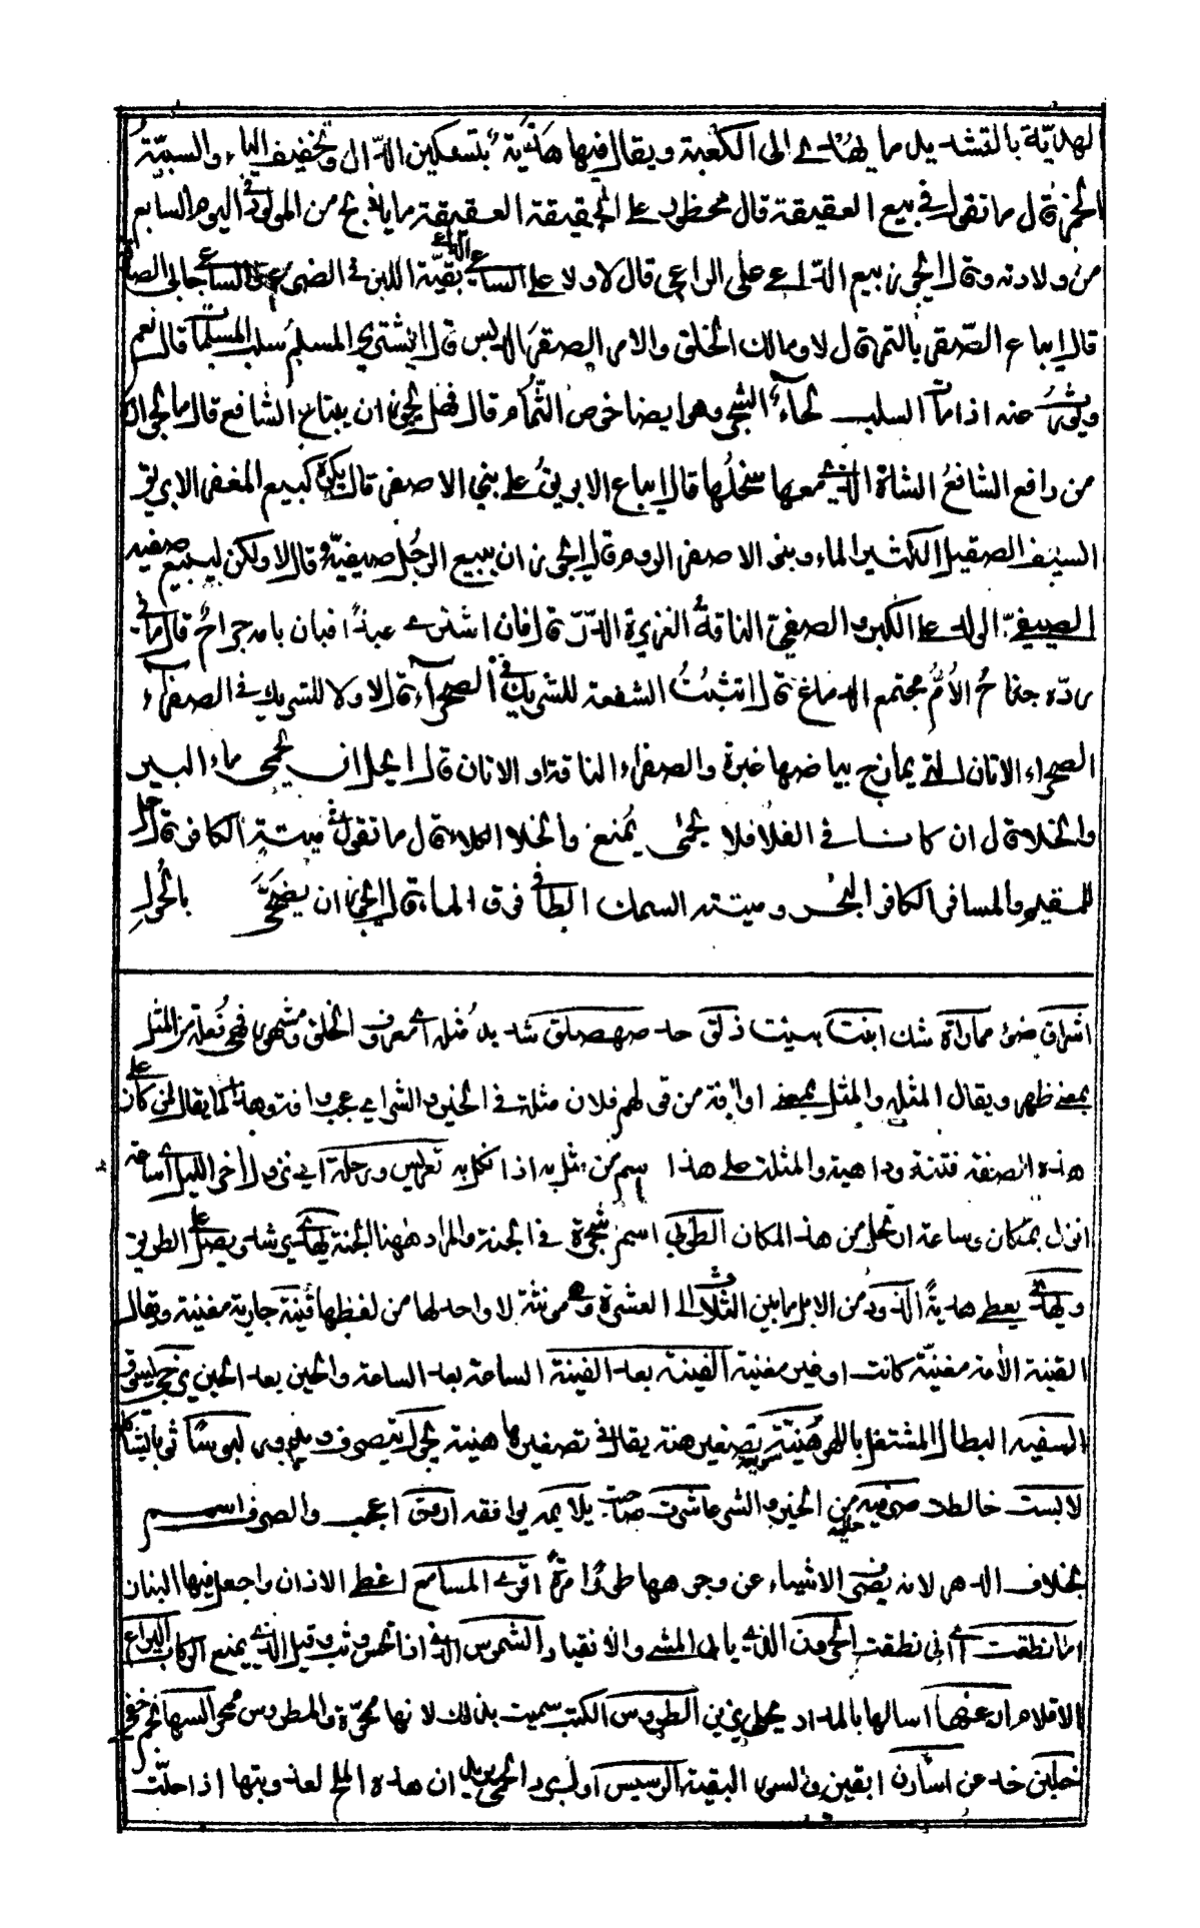 الهديّة بالتشديد ما يهدى الى الكعبة ويقال فيها هدية بتسكين الدال وتخفيف الياء والسبيّة
الخمر قال ما تقول في بيع العقيقة قال محظور على الحقيقة العقيقة ما يذبح من المولود في اليوم السابع
من ولادته قال ايجوز بيع الداعي على الراعي قال لا ولا على الساعي الداعي بقيّة اللبن في الضرع والساعي جابي الصدقة
قال ايباع الصّقر بالتمر قال لا ومالك الخلق والامر الصقر الدبس قال ايشتري المسلم سلب المسلمات قال نعم
ويورث عنه اذا مات السلب لحاء الشجر وهو ايضا خوص الثّمام قال فهل يجوز ان يبتاع الشافع قال ما لجوازه
من دافع الشافع الشاة التي معها سخلها قال ايباع الابريق على بني الاصفر قال يكره كبيع المغفر الابريق
السيف الصقيل الكثير الماء وبنو الاصفر الروم قال ايجوز ان يبيع الرجل صيفيّه قال لا ولكن ليبيع صفيه
الصيفيّ الولد على الكبر والصفيّ الناقة الغزيرة الدّرّ قال فان اشترى عبدًا فبان بامه جراح قال ما في
ردّه جناح الأمّ مجتمع الدماغ قال اتثبت الشفعة للشريك في الصحراء قال لا ولا للشريك في الصفراء
الصحراء الاتان التي يمازج بياضها غبرة والصفراء الناقة او الاتان قال ايحل ان يحمى ماء البير
والخلا قال ان كانا في الفلا فلا يحمى يمنع والخلا الكلاء قال ما تقول في ميتة الكافر قال حل
للمقيم والمسافر الكافر البحر وميتته السمك الطافي فوق الماء قال ايجوز ان يضحّى بالحول
اشراق ضوء مماراة شك ابنت بينت ذلق حد صهصلق شديد مثله اي معروف الخلق مشهور فهي فعلة من المثل
بمعنى ظهر ويقال المثله والمثل بمعنى او افة من قولهم فلان مثلة في الخير والشر اي عجب وافة وهذا كما يقال لمن كان على
هذه الصفة فتنة وداهية والمثلة على هذا اسم من مثل به اذا نكل به تعريس ورحلة اي نزول اخر الليل اي ساعة
انزل بمكان وساعة ارتحل من هذا المكان الطوبى اسم شجرة في الجنة والمراد ههنا الجنة يهدي يرشد ويصل على الطريق
ويهدي يعطي هدية الذود من الابل ما بين الثلاث الى العشرة وهي مؤنثة لا واحد لها من لفظها قينة جارية مغنية ويقال
القينة الأمة مغنيّة كانت او غير مغنية الفينة بعد الفينة الساعة بعد الساعة والحين بعد الحين يزجي يسوق
السفيه البطال المشتغل باللهو هنيّة تصغير هنة يقال في تصغيرها هنية
لابست خالطت صرفيه من الخير والشر عاشرت صاحبت يلايمه يوافقه اروق اعجب والصرف اسم
بخلاف الدهر لانه يصرف الاشياء عن وجوهها طرًا مرة اقوى المسامع اغطي الاذان واجعل فيها البنان
الحرون الذي يابى المشي والانقياد والشموس الذي اذا نخس وثب وقيل الذي يمنع الركاب اليراع
الاقلام ارعفها اسالها بالمداد يحلي يزين الطروس الكتب سميت بذلك لانها ممحوّة والمطروس ممحو السها نجم خفي
حين خد عن اسارت ابقين والسور البقية الرسيس اول ان هذه الملح لعذوبتها اذا حلّت